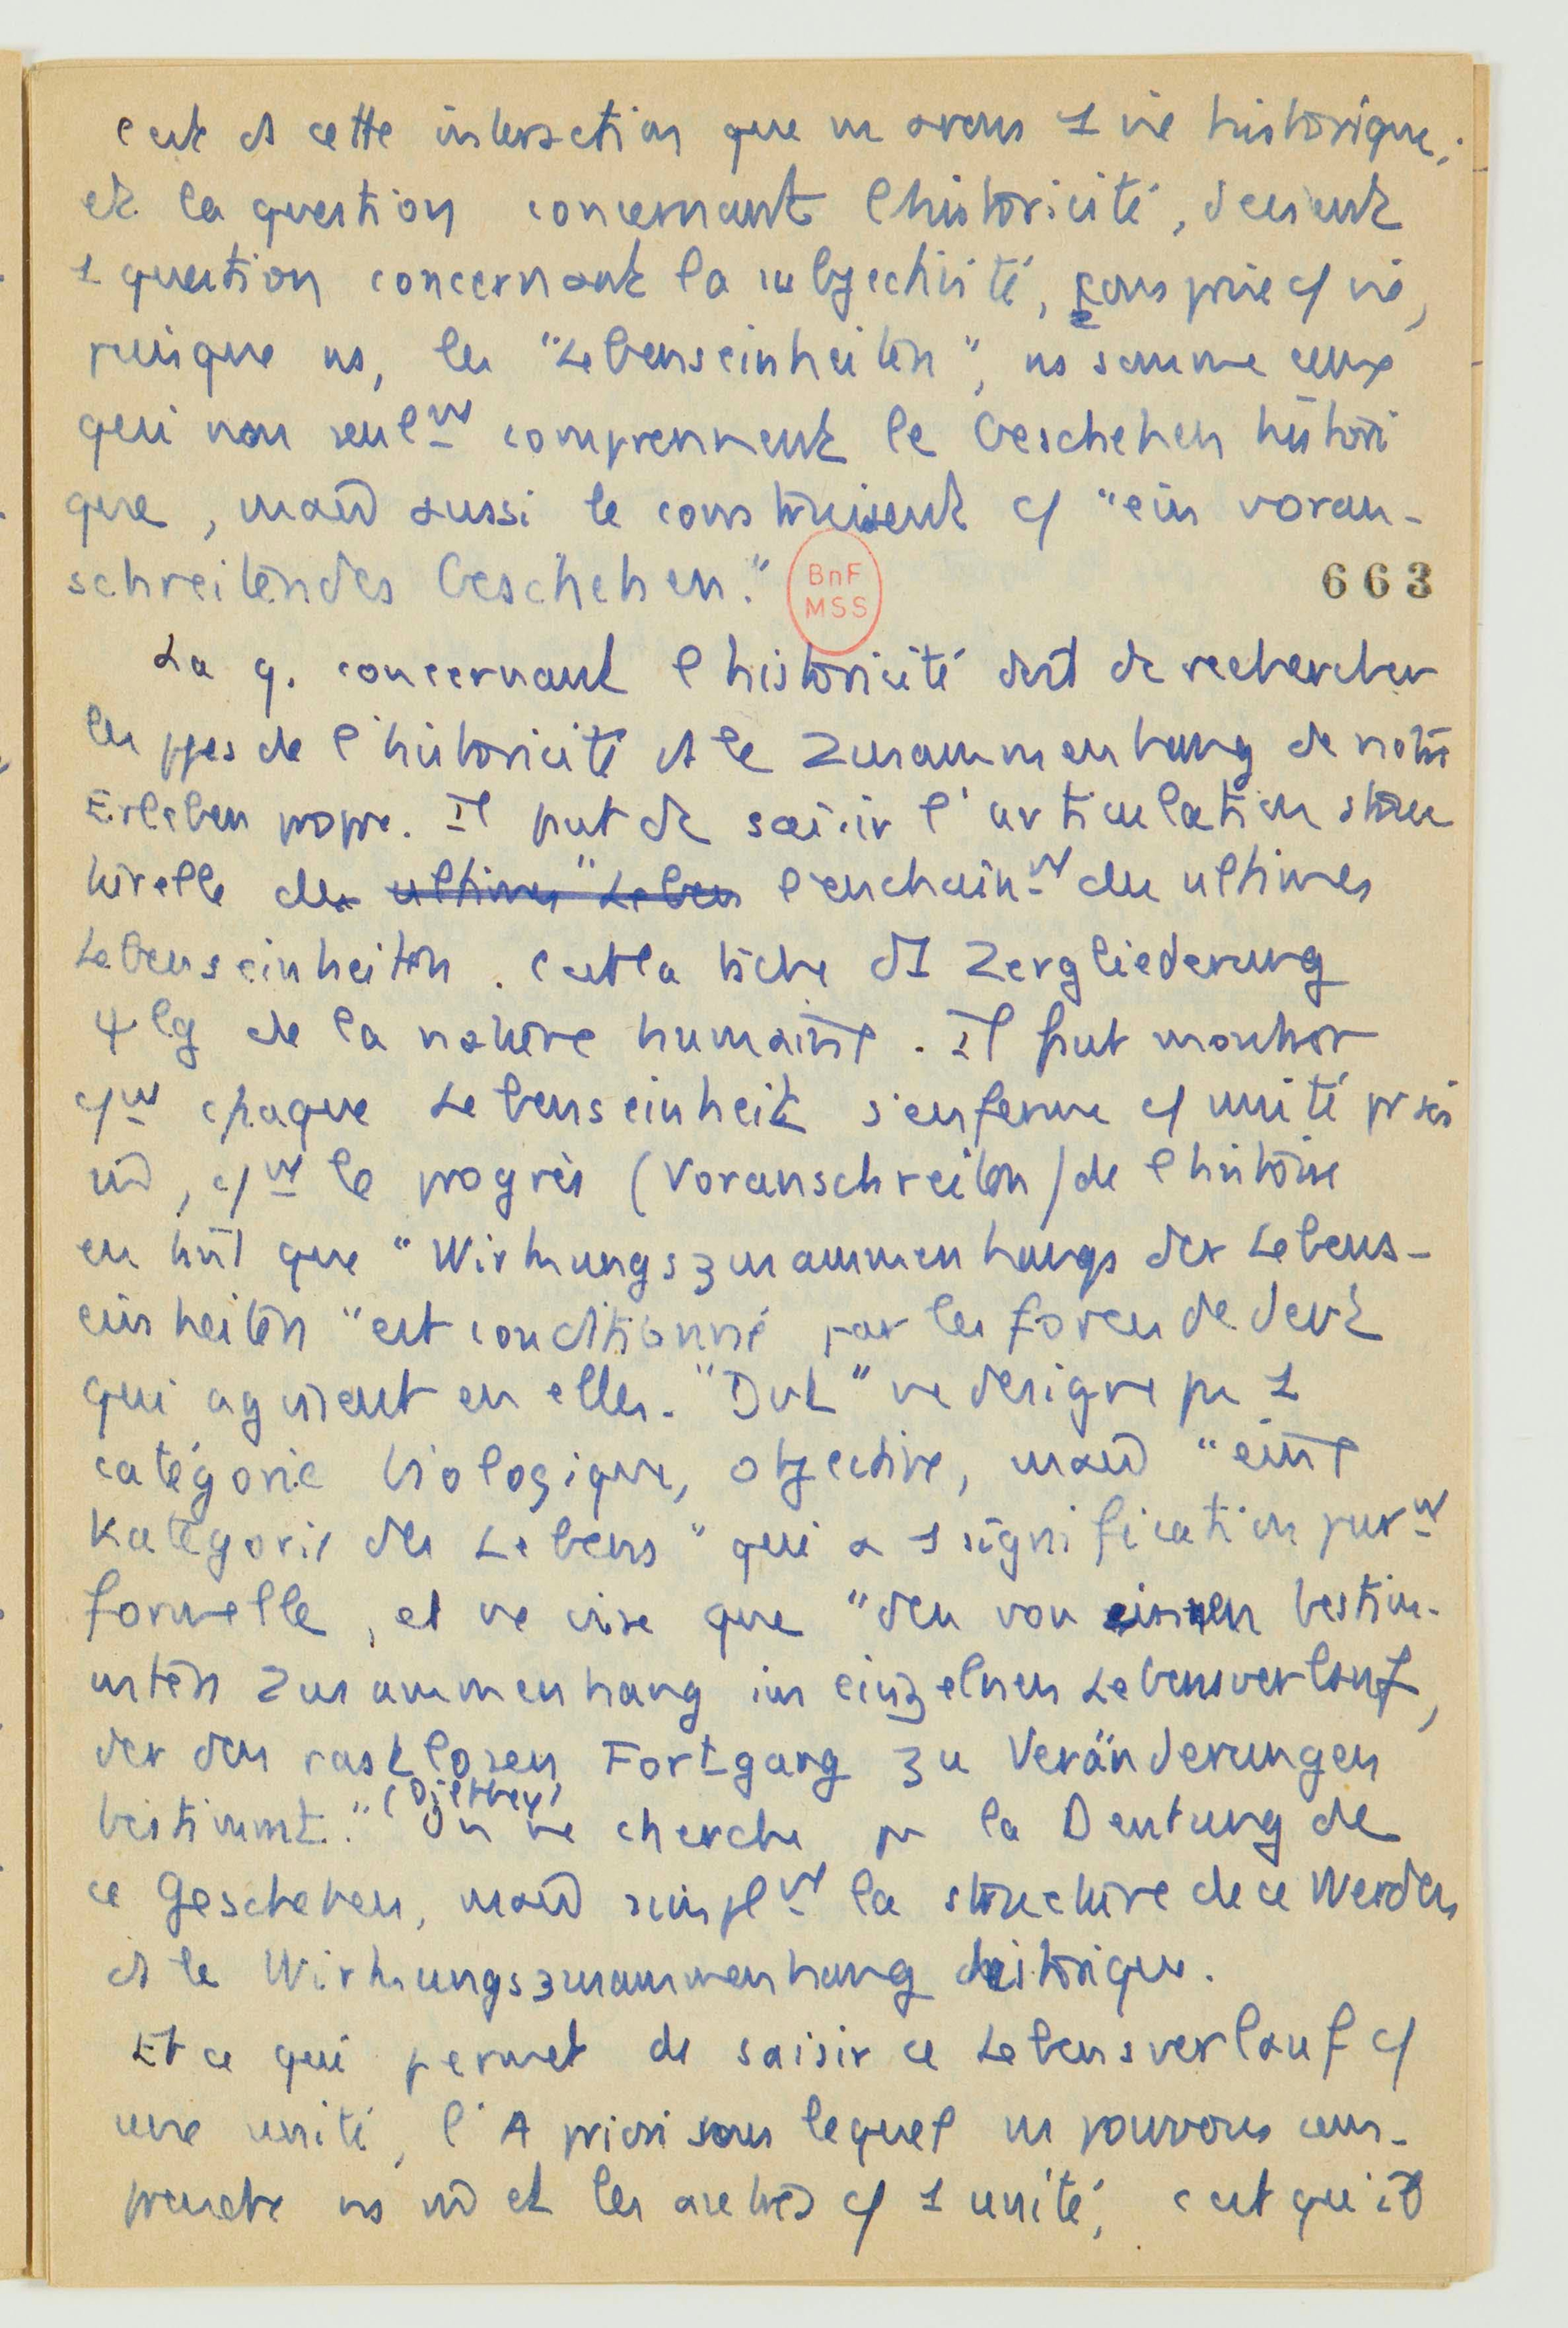 c'est ds cette intersection que ns avons 1 vie historique;
et la question concernant l'historicité, devient
1 question concernant la subjectivité, comprise c/ vie,
puisque ns, les "Lebenseinheiten", ns sommes ceux
qui non seulᵐᵗ comprennent le Geschehen histori
que, mais aussi le construisent c/ "ein voran-
schreitendes Geschehen."
BnF
MSS
663
La q. concernant l'historicité doit de rechercher
les ppes de l'historicité ds le Zusammenhang de notre
Erleben propre. Il faut de saisir l'articulation struc
turelle de ultimes "Leben l'enchainᵐᵗ des ultimes
Lebenseinheiten. C'est la tâche d'1 Zergliederung
ψlg de la nature humaine. Il faut montrer
c/ᵐᵗ chaque Lebenseinheit s'enferme c/ unité pr soi
m̂, c/ᵐᵗ le progrès (Voranschreiten) de l'histoire
en tant que "Wirkungszusammenhangs der Lebens-
einheiten" est conditionné par les forces de
qui agissent en elles. " " ne désigne pas 1
catégorie biologique, objective, mais "eine
Kategorie des Lebens" qui a 1 signification purᵐᵗ
formelle, et ne vise que "den von einen bestim-
mten Zusammenhang im einzelnen Lebensverlauf,
der den rastlosen Fortgang zu Veränderungen
bestimmt." (Dilthey) On ne cherche pas la Deutung de
ce Geschehen, mais simplᵐᵗ la structure de ce Werden
ds le Wirkungszusammenhang historique.
Et ce qui permet de saisir ce Lebensverlauf c/
une unité, l'A priori sous lequel ns pouvons com-
prendre ns m̂ et les autres c/ 1 unité, c'est qu'il